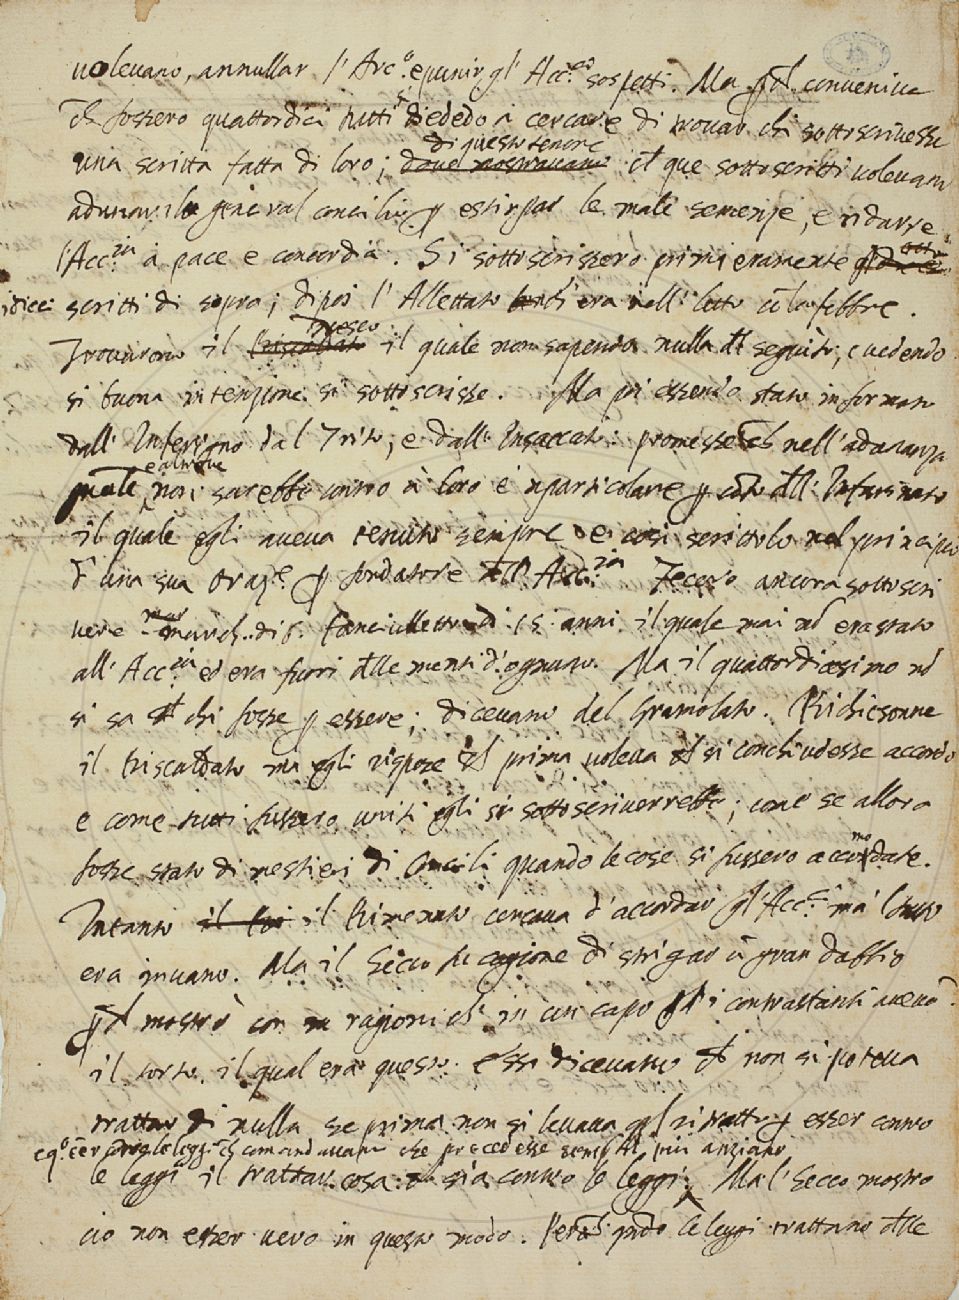 uolevano, annullar l'Arc.º e punir gl' Acc.ci sospetti. Ma p ch conveniva
ch fossero quattordici tutti si diedero à cercare di trovar chi sottoscrivesse
di questo tenore
una scritta fatta di loro; ch que sottoscritti volevano
adunar il general concilio p estirpar le male semenze, e ridurre
l'Acc.ia à pace e concordia. Si sottoscrissero primieramente
otto
idieci scritti di sopra; dipoi l'Allettato era nell' letto cō la febbre.
Fresco
Trovarono il Riscaldato il quale non sapendo nulla dl seguito, e vedendo
si buona intenzione si sottoscrisse. Ma poi essendo stato informato
dall' Inferigno dal Trito, e dall' Insaccato: promesse ch nell'adunanza
e altrove
non sarebbe contro à loro e in particolare p conto dll' Infarinato
il quale egli aveva tenuto sempre e così scrittolo nel principio
d' una sua Oraz.e p fondatore dll' Acc.ia Fecero ancora sottoscri
vere march. di fanciulletto di 15 anni il quale mai nō era stato
all' Acc.ia ed era fuori dlle menti d'ognuno. Ma il quattordicesimo nō
si sa chi fosse p essere; dicevano del Gramolato. Richiesonne
il Riscaldato ma egli rispose ch prima voleva ch si conchiudesse accordo
e come tutti fussero uniti egli si sottoscriverrebbe; come se allora
fosse stato di mestieri di Concili quando le cose si fussero accomodate.
Intanto il Rimenato cercava d'accordar gl'Acc.ci ma il tutto
era invano. Ma il Secco fu cagione di strigar un gran dubbio
p ch mostrò con ragioni ch in un capo i contrattanti avevō
il torto, il qual era questo. essi dicevano ch non si poteva
trattar di nulla se prima non si levava p esser contro
le leggi ch comandavano che precedesse sempre il più anziano
le leggi il trattar cosa ch sia contro le leggi; Ma l'Secco mostrò
ciò non esser vero in questo modo. le leggi trattano dlle